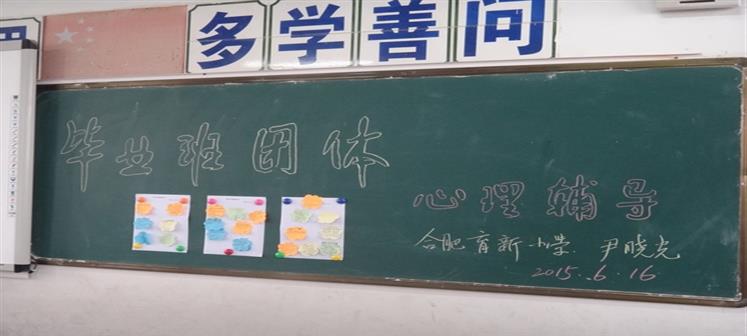 多学善问
毕业班团体
心理辅导
合肥育新小学 尹晓光
2015.6.16